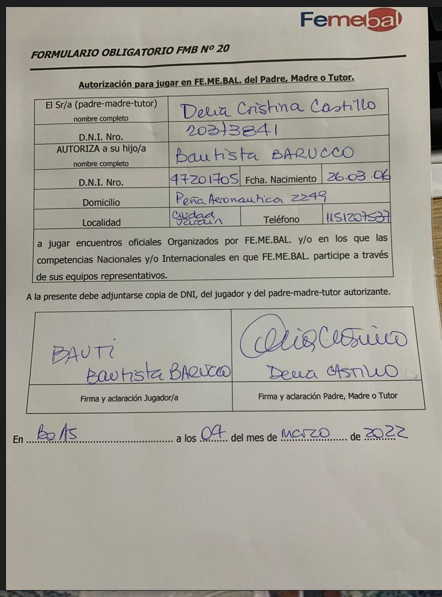 Femebal
FORMULARIO OBLIGATORIO FMB Nº 20
Autorización para jugar en FE.ME.BAL. del Padre, Madre o Tutor.
El Sr/a (padre-madre-tutor) Delia Cristina Castillo
nombre completo
D.N.I. Nro. 20373841
AUTORIZA a su hijo/a Bautista BARUCCO
nombre completo
D.N.I. Nro. 47201705 Fcha. Nacimiento 26.03.06
Domicilio Peña Aeronautica 2249
Localidad Ciudad Teléfono 1151207537
a jugar encuentros oficiales Organizados por FE.ME.BAL. y/o en los que las
competencias Nacionales y/o Internacionales en que FE.ME.BAL. participe a través
de sus equipos representativos.
A la presente debe adjuntarse copia de DNI, del jugador y del padre-madre-tutor autorizante.
BAUTI
Bautista BARUCCO Delia CASTILLO
Firma y aclaración Jugador/a Firma y aclaración Padre, Madre o Tutor
En Bs As a los 04 del mes de Marzo de 2022